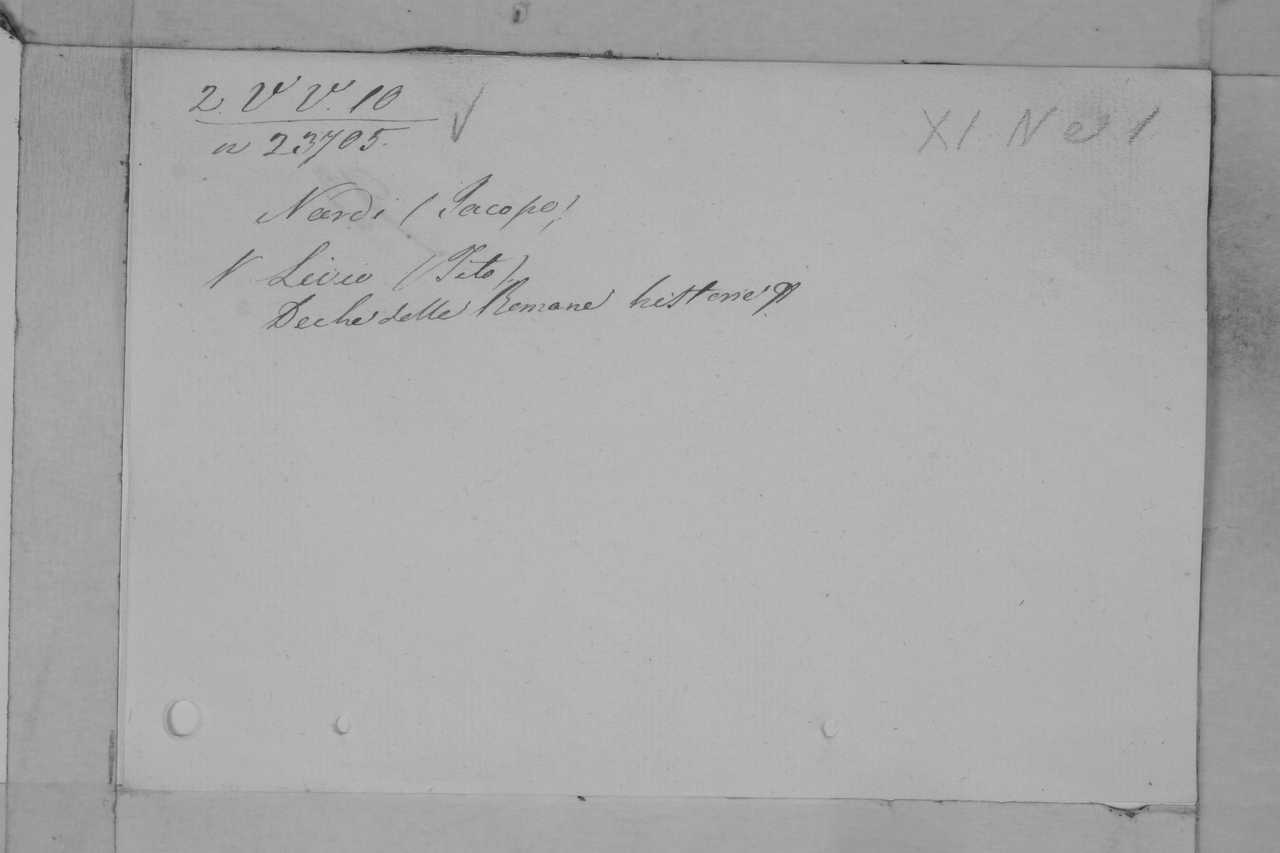 2. V V. 10
n 23705.
XI N e 1
Nardi (Jacopo)
V Livio (Tito).
Deche delle Romane historie